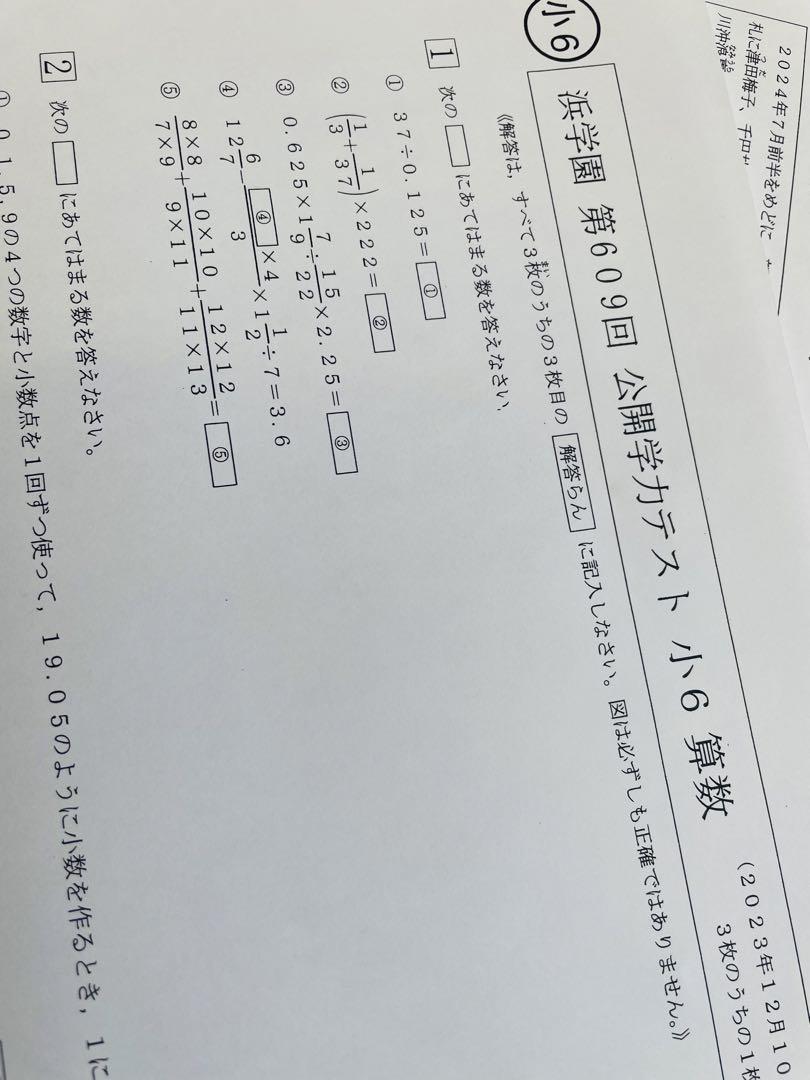 2024年7月前半をめどに
札に津田梅子、千円
小6
浜学園 第609回 公開学力テスト 小6 算数
(2023年12月10
3枚のうちの1枚
《解答は，すべて3枚のうちの3枚目の 解答らん に記入しなさい。図は必ずしも正確ではありません。》
1 次の□にあてはまる数を答えなさい。
① 37÷0.125=①
② (1/3+1/37)×222=②
③ 0.625×1 7/9÷15/22×2.25=③
④ 12 6/7-(④×4)/3×1 1/2÷7=3.6
⑤ (8×8)/(7×9)+(10×10)/(9×11)+(12×12)/(11×13)=⑤
2 次の□にあてはまる数を答えなさい。
① 0，1，5，9の4つの数字と小数点を1回ずつ使って，19.05のように小数を作るとき，1に